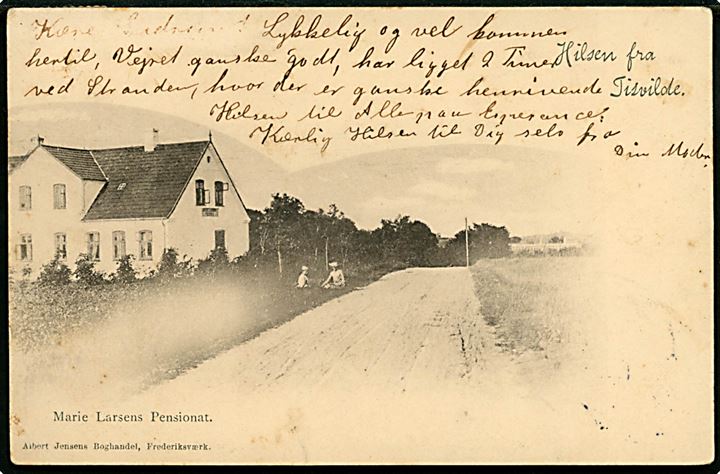 Kære Lykkelig og vel kommen
hertil, Vejret ganske godt, har ligget 2 Timer
Hilsen fra
ved Stranden, hvor der er ganske henrivende
Tisvilde.
Hilsen til Alle paa Esperance!
Kærlig Hilsen til Dig selv fra
Din Moder
Marie Larsens Pensionat.
Albert Jensens Boghandel, Frederiksværk.